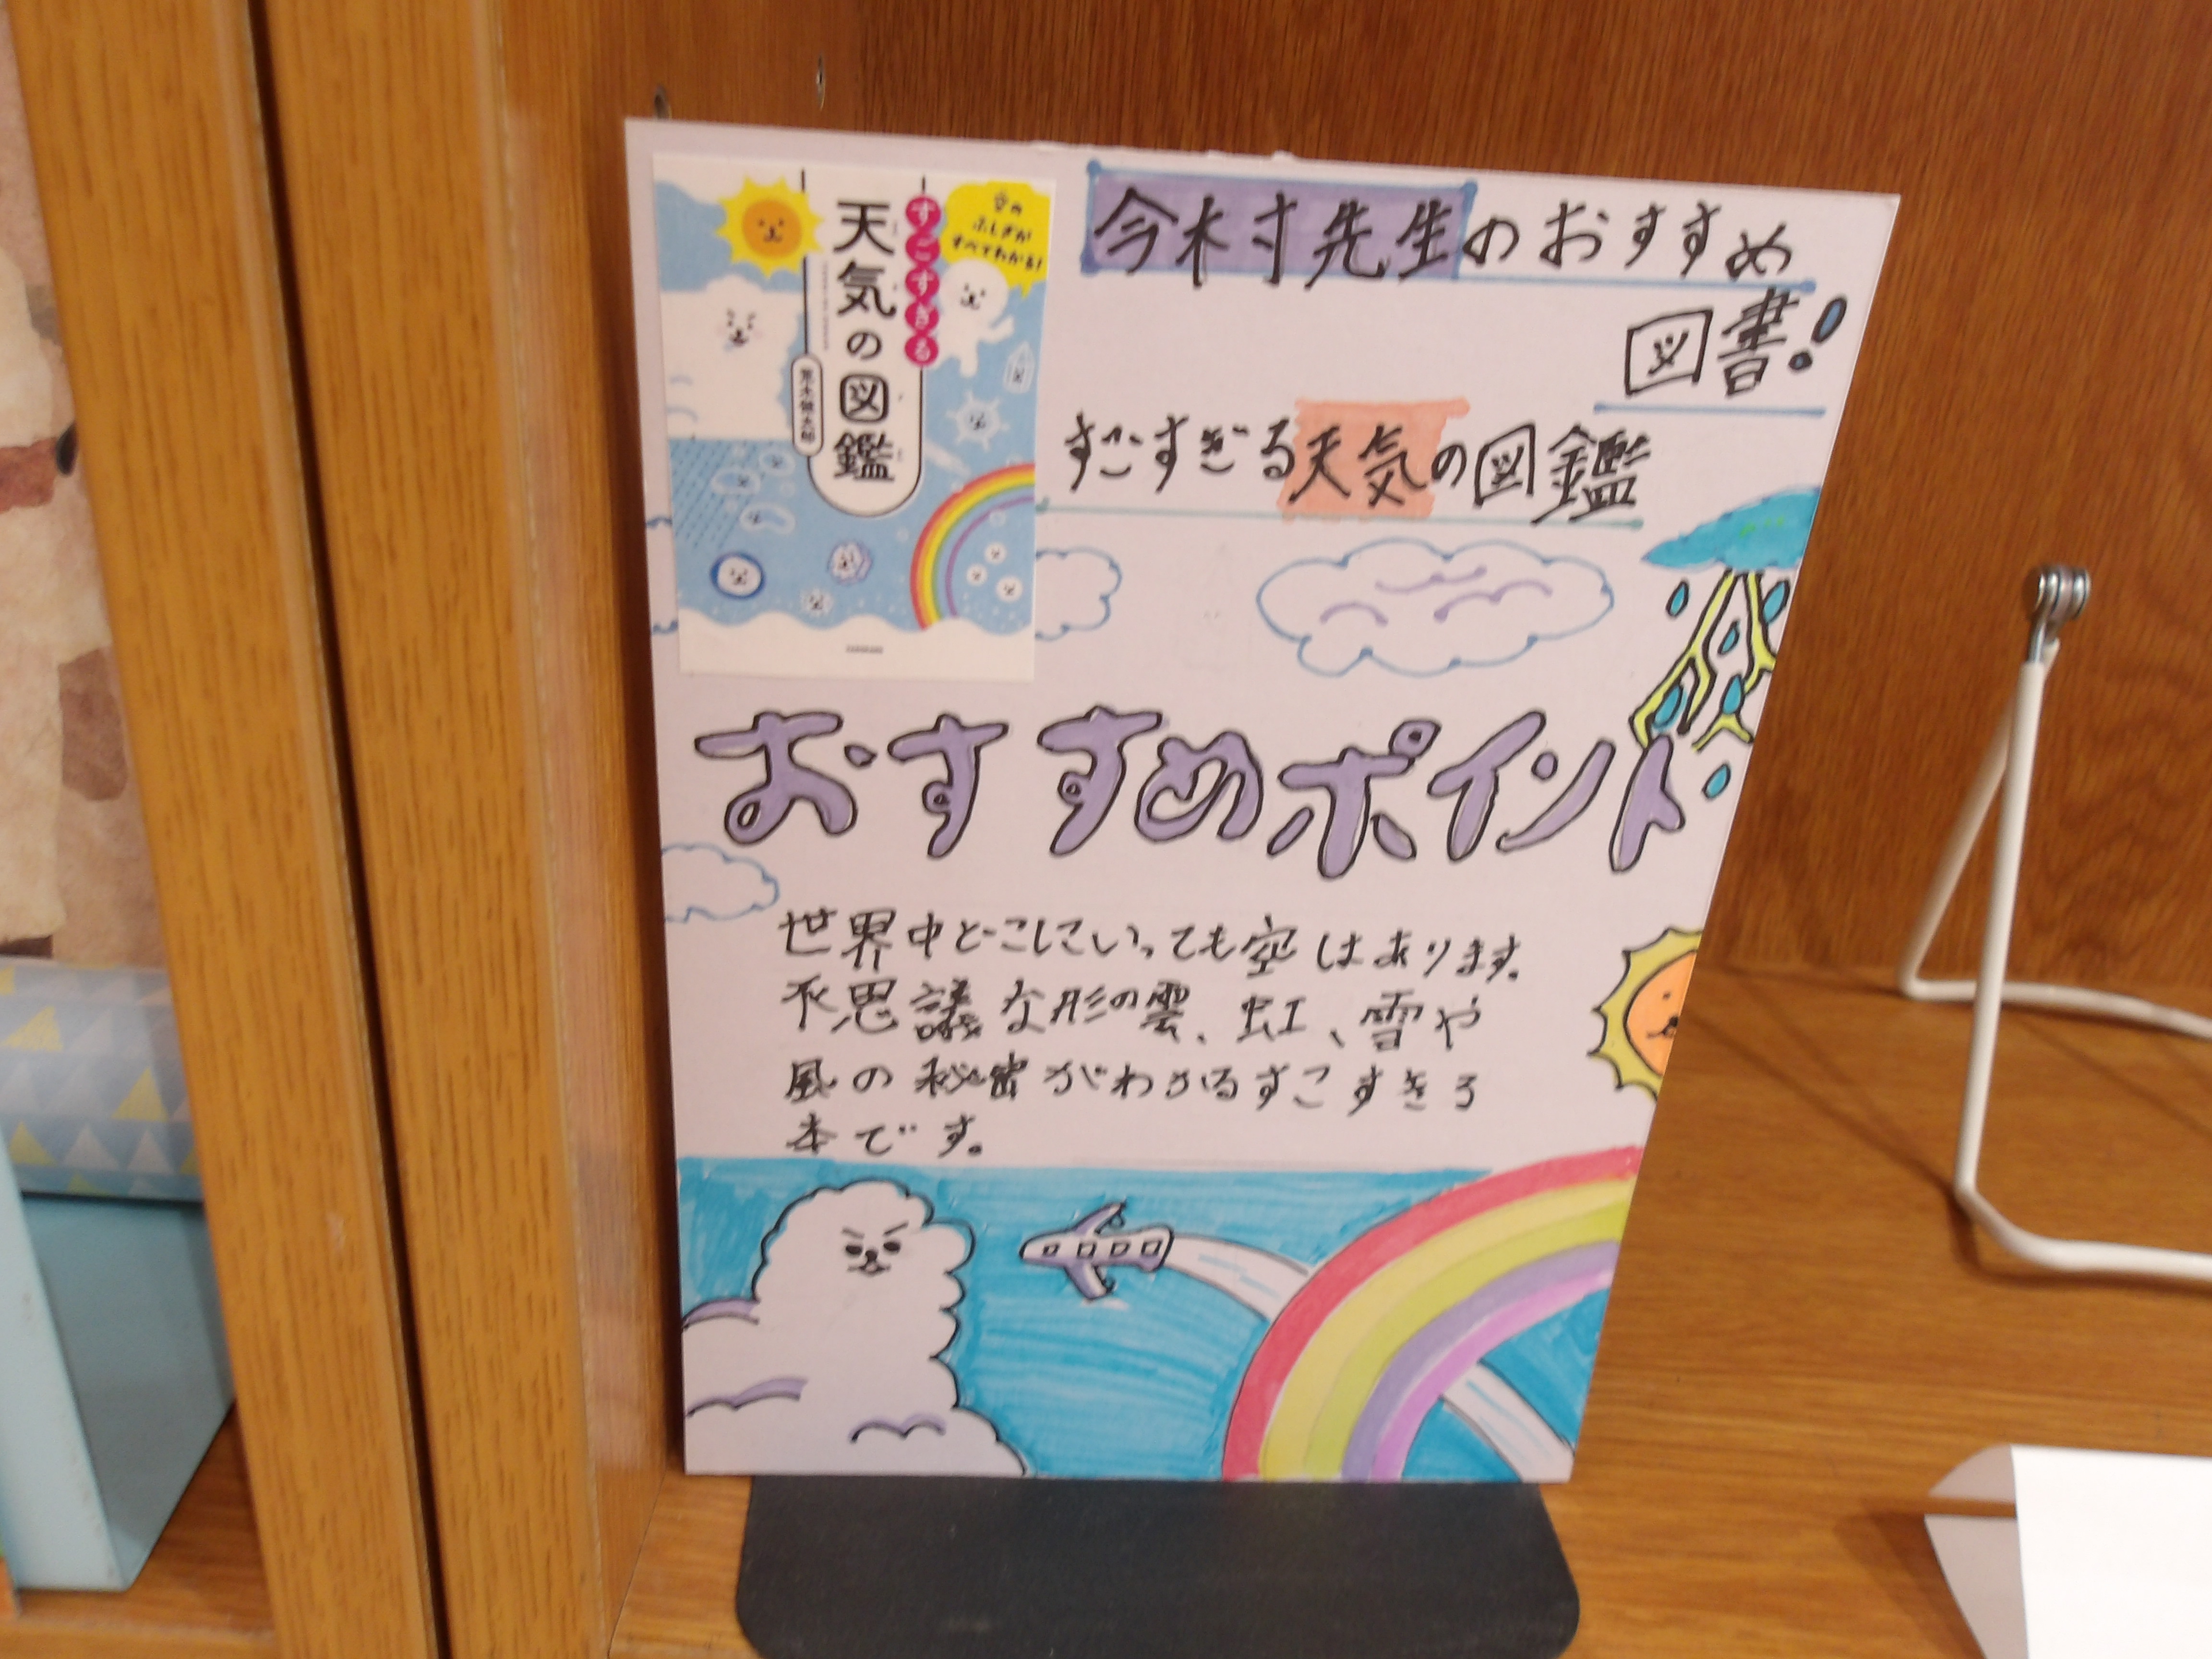 空の
ふしぎが
すべてわかる!
すごすぎる
天気の図鑑
荒木健太郎
今村先生のおすすめ
図書!
すごすぎる天気の図鑑
おすすめポイント
世界中どこにいっても空はあります。
不思議な形の雲、虹、雪や
風の秘密がわかるすごすぎる
本です。